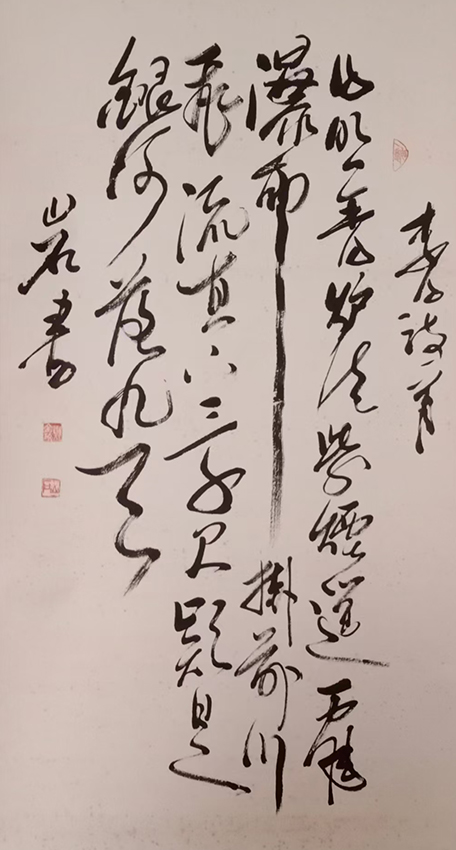 李白詩一首
日照香炉生紫煙遥看
瀑布掛前川
飛流直下三千尺疑是
銀河落九天
岩書